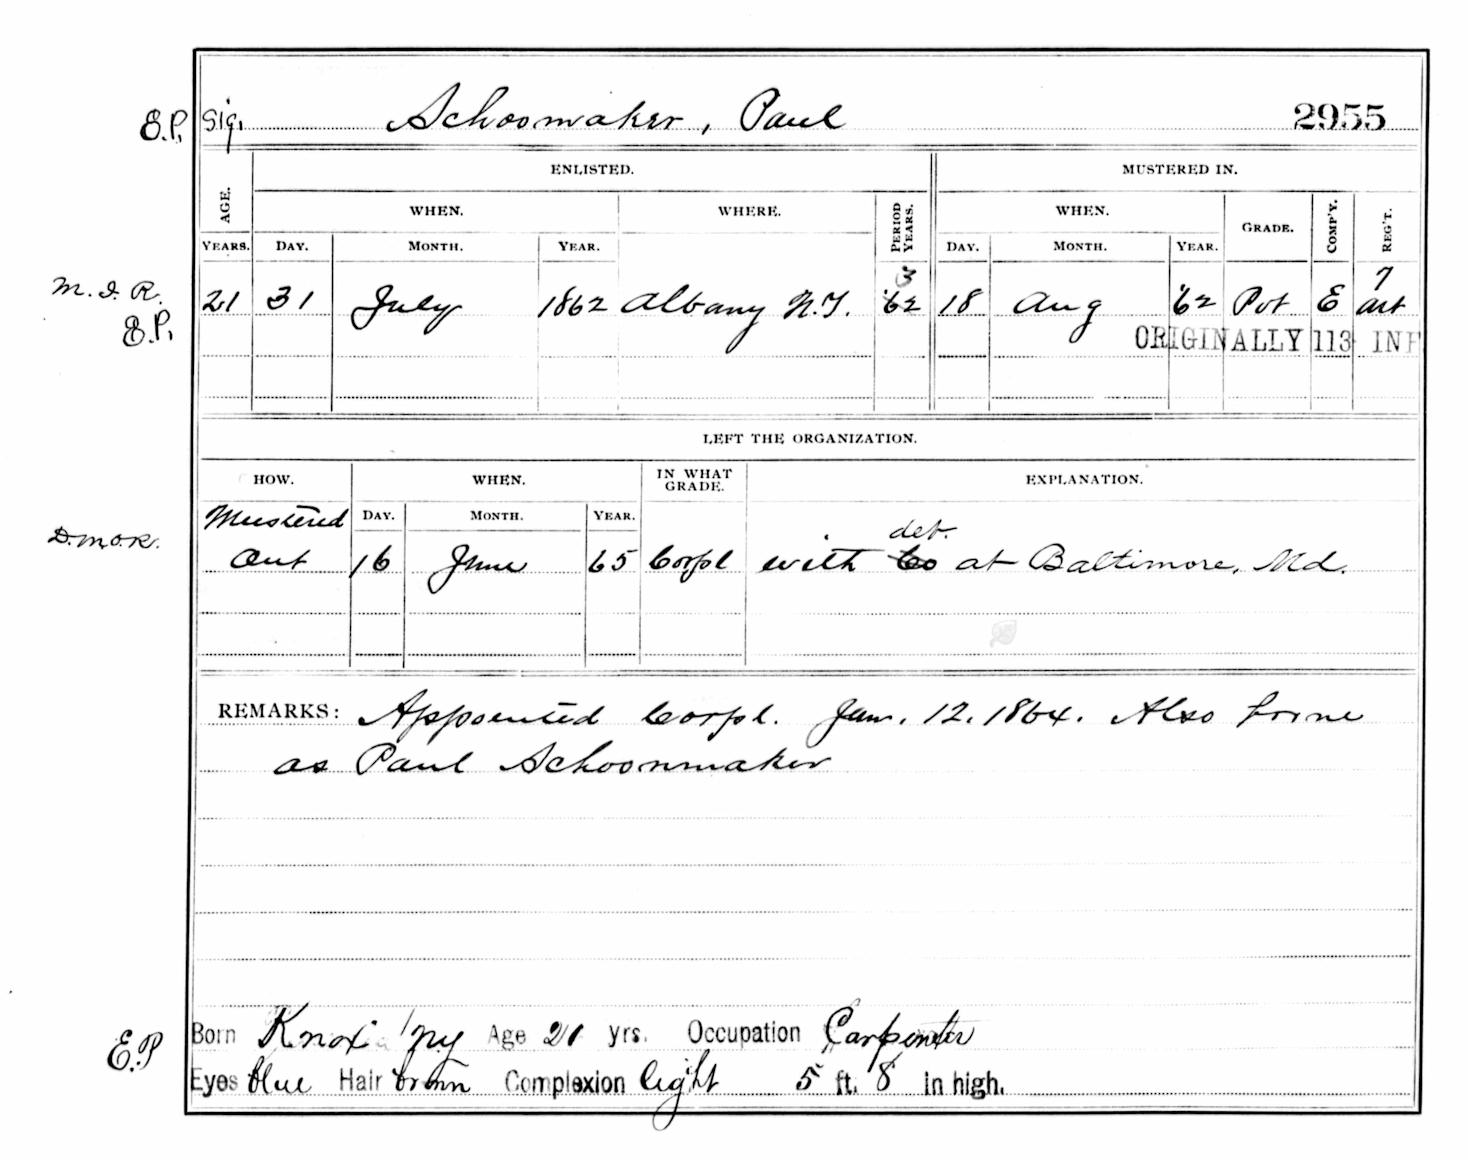 E.P. Sig. Schoomaker, Paul 2955
ENLISTED. MUSTERED IN.
AGE. WHEN. WHERE. PERIOD YEARS. WHEN. GRADE. COMP'Y. REG'T.
YEARS. DAY. MONTH. YEAR. DAY. MONTH. YEAR.
3 7
M.I.R. 21 31 July 1862 Albany N.Y. '62 18 Aug '62 Pvt E art
E.P. ORIGINALLY 113 INF
LEFT THE ORGANIZATION.
HOW. WHEN. IN WHAT GRADE. EXPLANATION.
Mustered DAY. MONTH. YEAR. det.
D.M.O.R. Out 16 June 65 Corpl with Co at Baltimore, Md.
REMARKS: Appointed Corpl. Jan. 12, 1864. Also borne
as Paul Schoonmaker
Born Knox NY Age 21 yrs. Occupation Carpenter
E.P Eyes blue Hair brown Complexion light 5 ft. 8 in high.